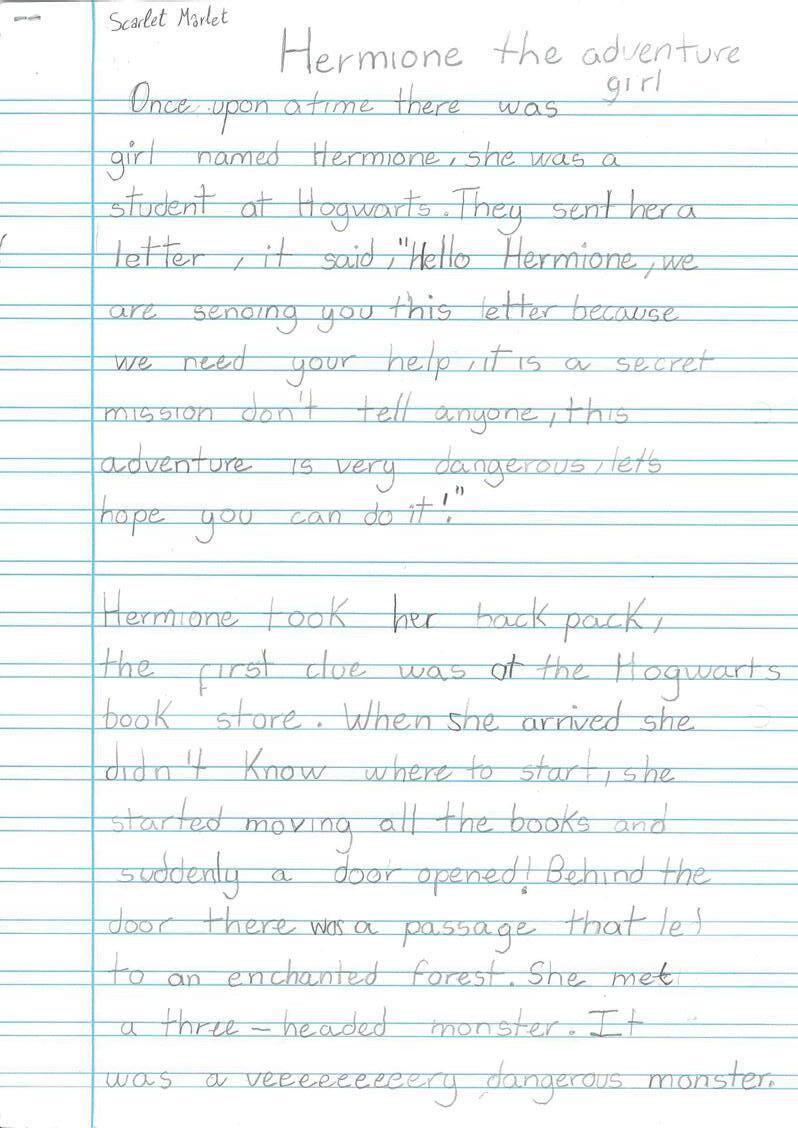 Scarlet Marlet
Hermione the adventure
girl
Once upon a time there was
girl named Hermione, she was a
student at Hogwarts. They sent her a
letter, it said, "Hello Hermione, we
are sending you this letter because
we need your help, it is a secret
mission don't tell anyone, this
adventure is very dangerous, let's
hope you can do it!"
Hermione took her back pack,
the first clue was at the Hogwarts
book store. When she arrived she
didn't know where to start, she
started moving all the books and
suddenly a door opened! Behind the
door there was a passage that led
to an enchanted forest. She met
a three-headed monster. It
was a veeeeeeeeery dangerous monster.